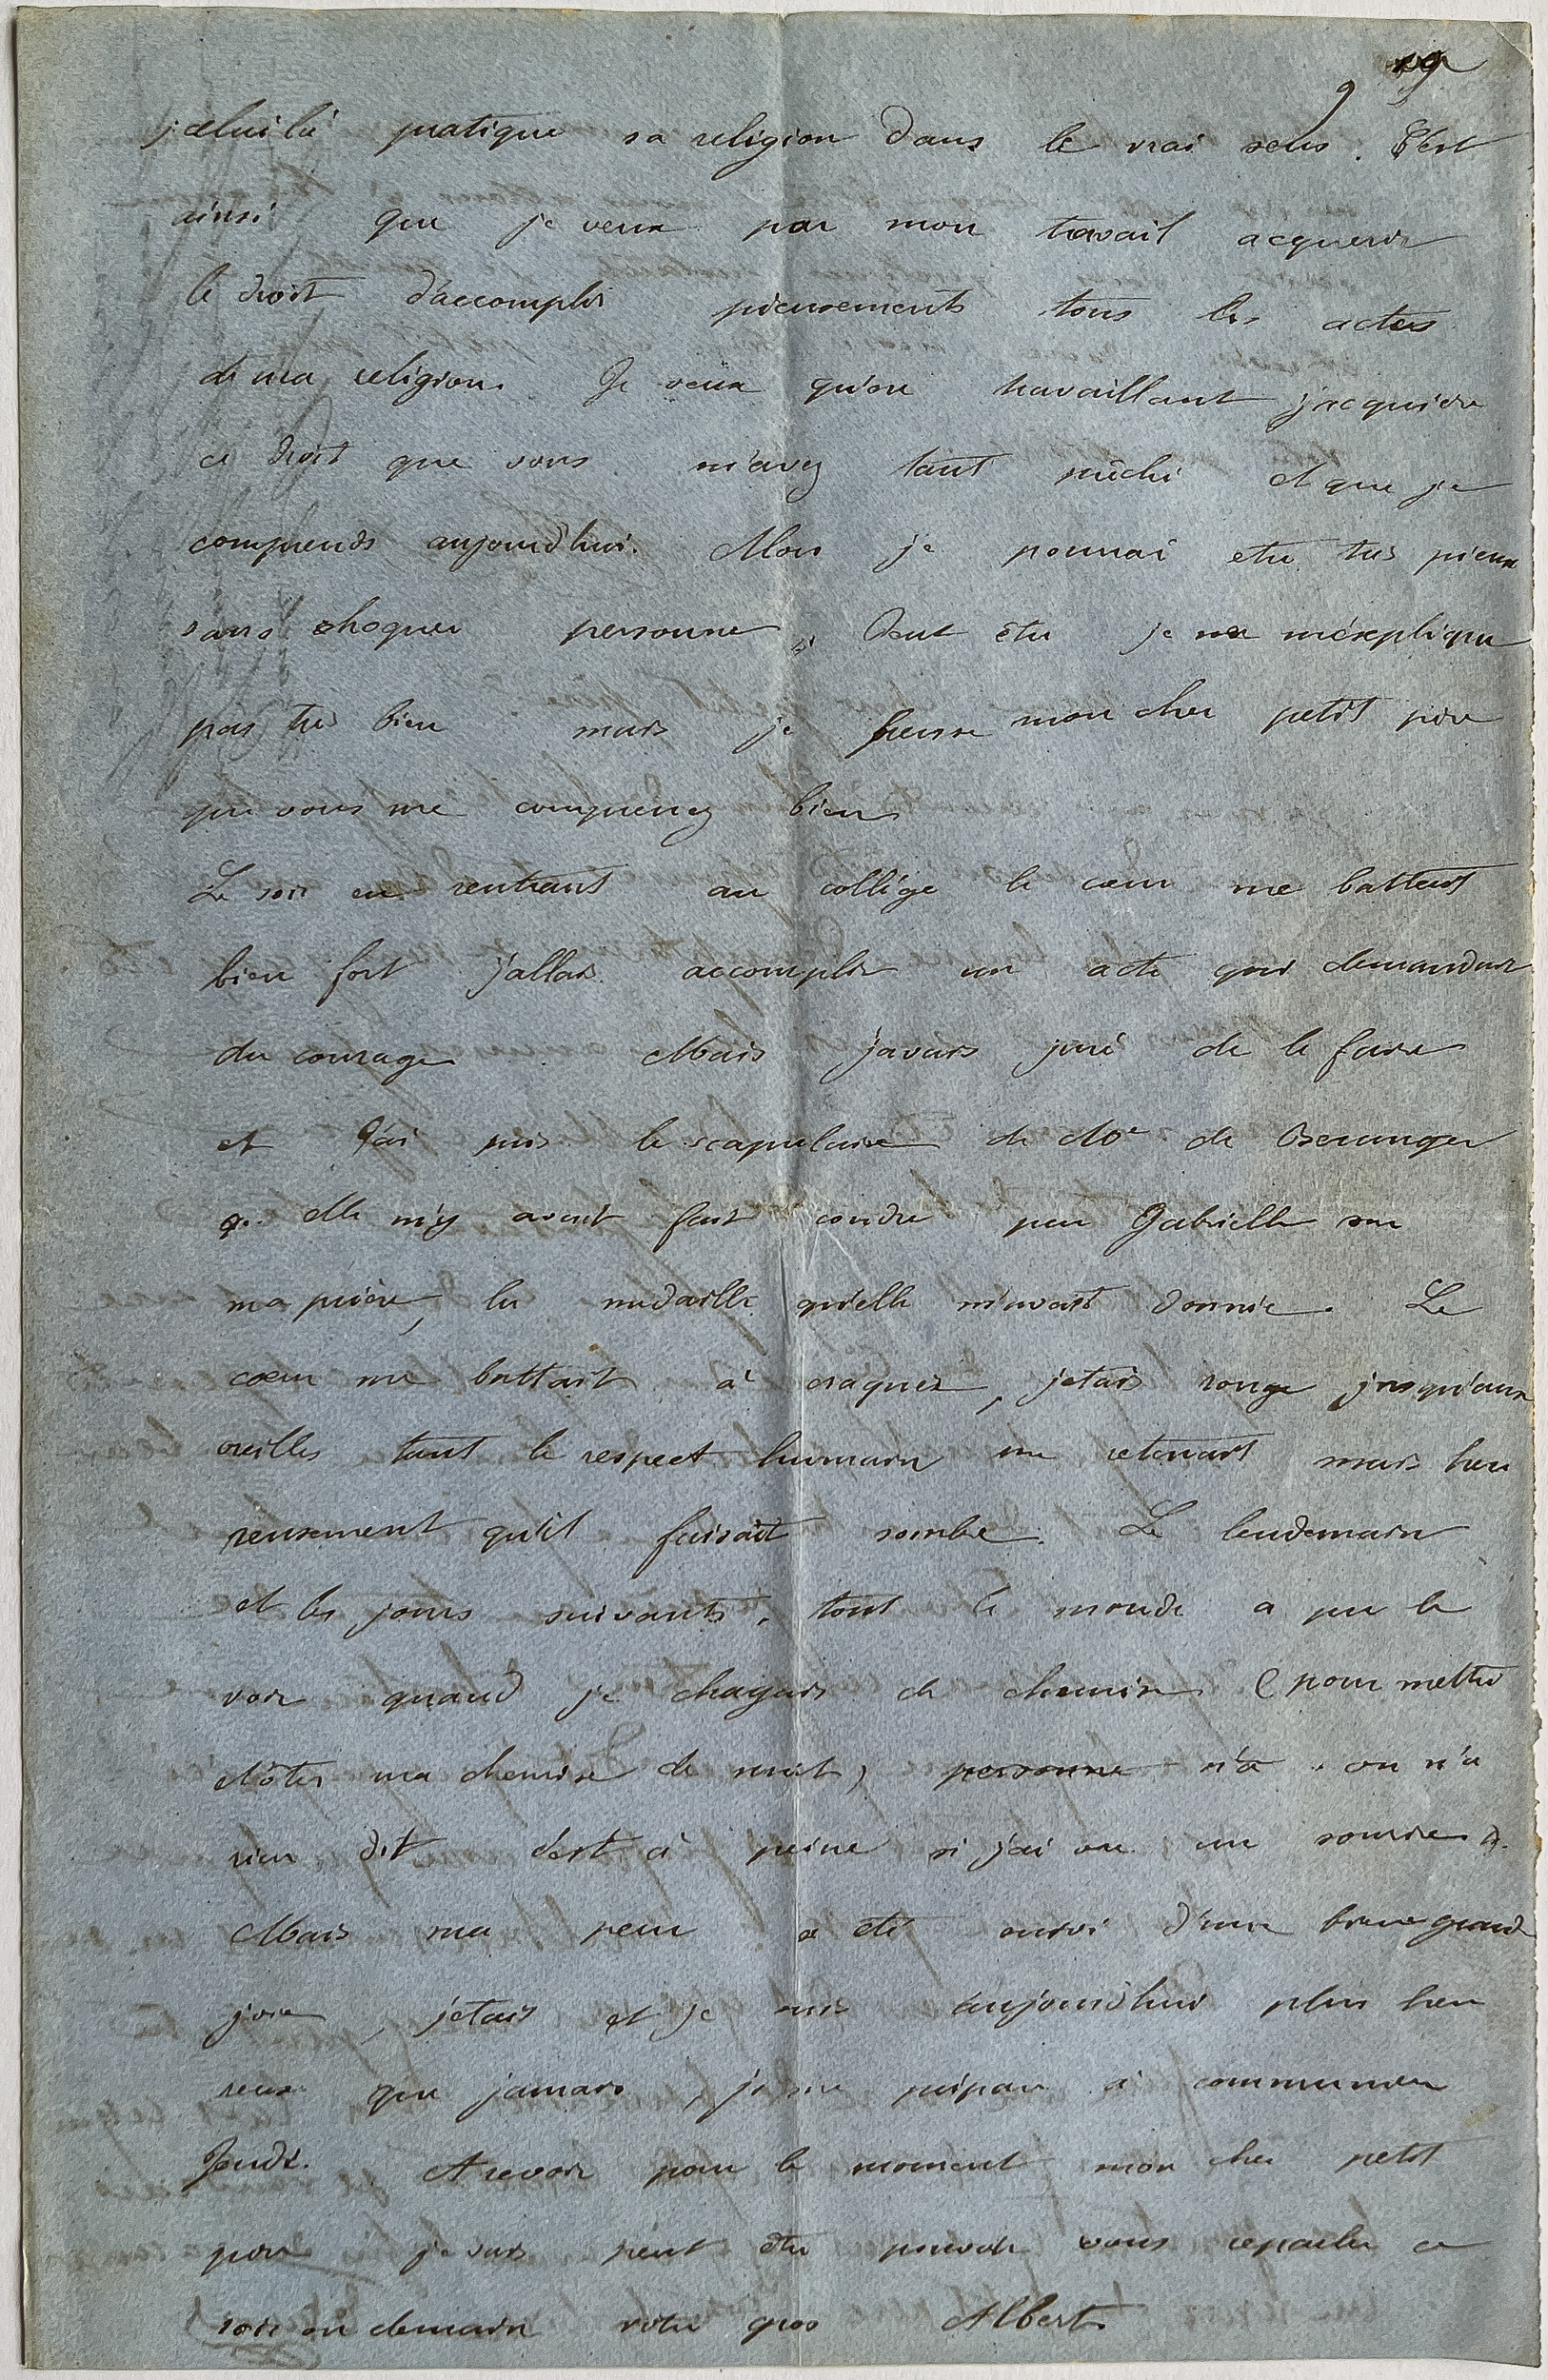 9
celui là pratique sa religion dans le vrai sens. C'est
ainsi que je veux par mon travail acquerir
le droit d'accomplir pieusements tous les actes
de ma religion. Je veux qu'en travaillant j'acquiere
ce droit que vous m'avez tant prêché et que je
comprends aujourd'hui. Alors je pourrai etre tres pieux
sans choquer personne. Peut être je ne m'éxplique
pas tres bien mais je pense mon cher petit père
que vous me comprenez bien
Le soir en rentrant au collége le cœur me battait
bien fort j'allais accomplir un acte qui demandait
du courage. Mais j'avais juré de le faire
et j'ai mis le scapulaire de Me de Beranger
elle m'y avait fait coudre par Gabrielle sur
ma prière, la medaille qu'elle m'avait donnée. Le
cœur me battait à craquer, j'etais rouge jusqu'aux
oreilles tant le respect humain me retenait mais heu
reusement qu'il faisait sombre. Le lendemain
et les jours suivants, tout le monde a pu le
voir quand je chageais de chemise (pour mettre
et ôter ma chemise de nuit) personne n'a on n'a
rien dit c'est à peine si j'ai vu un sourire.
Mais ma peur a été suivi d'une bien grande
joie, j'etais et je suis aujourd'hui plus heu
reux que jamais, je me prepare à communier
Jeudi. A revoir pour le moment mon cher petit
père je vais peut etre pouvoir vous reparler ce
soir ou demain votre gros Albert